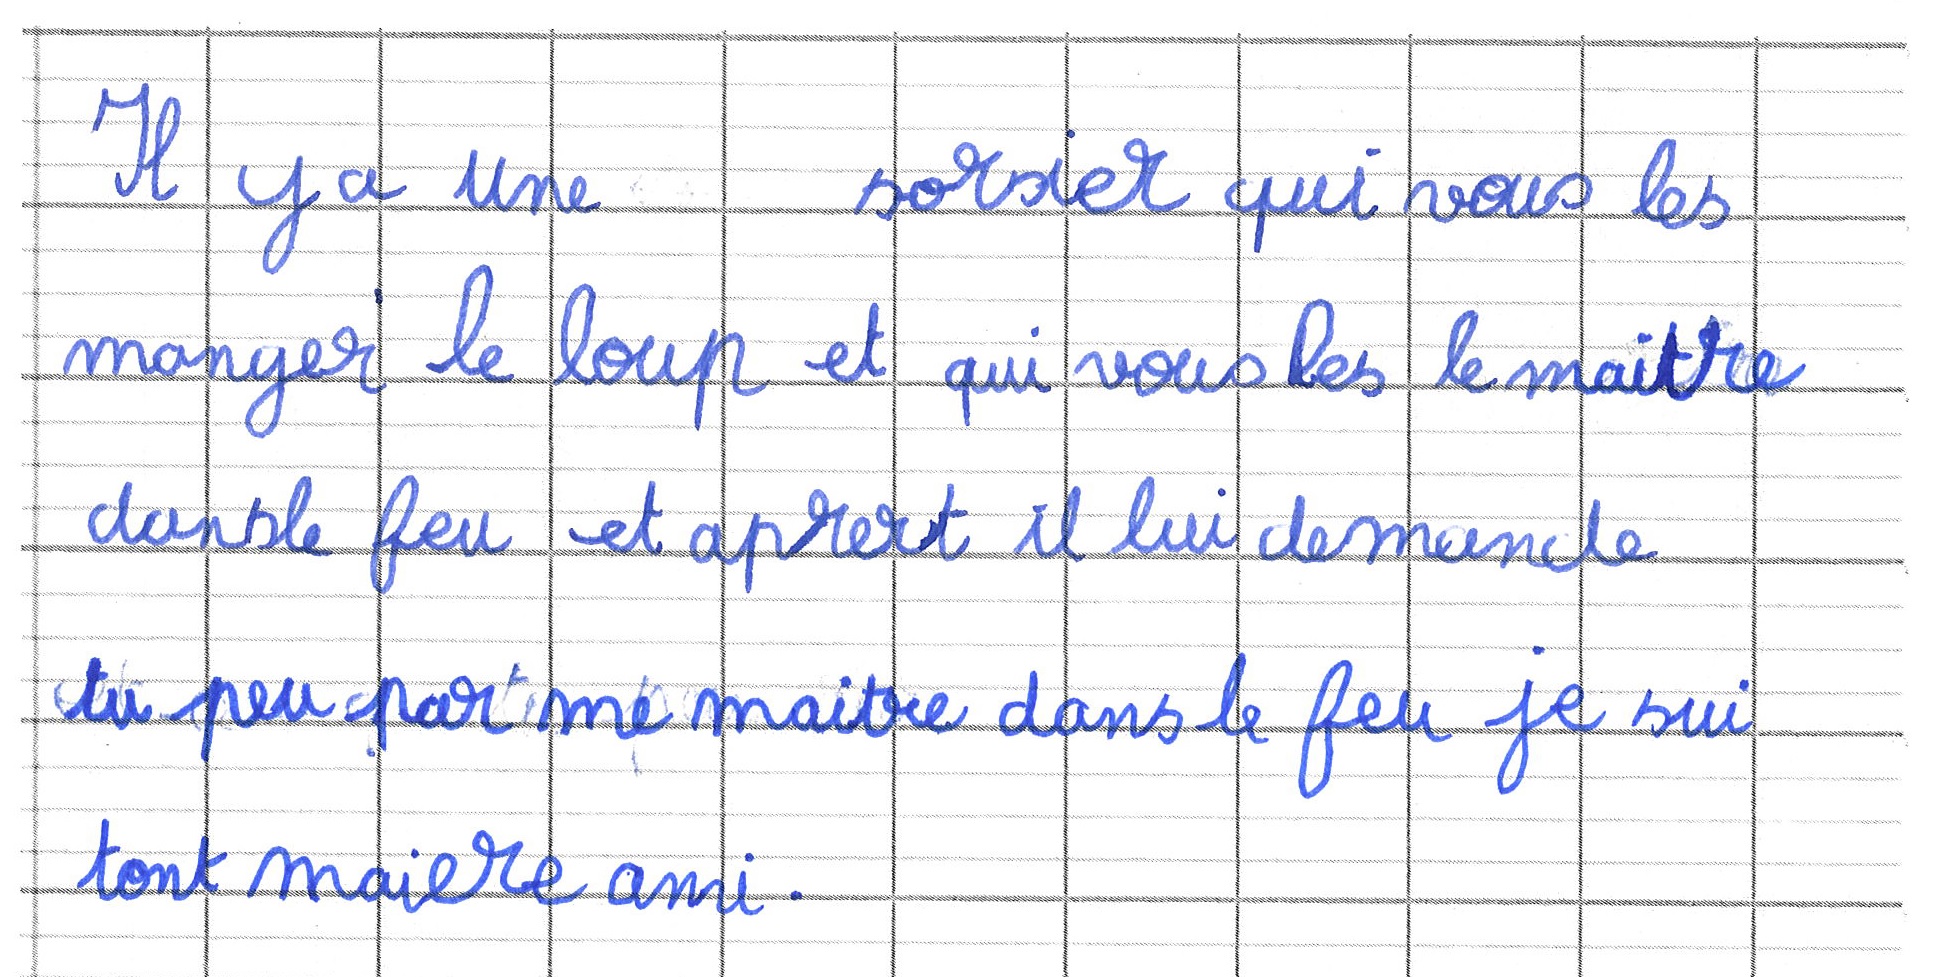 Il y a une sorsier qui vous les
manger le loup et qui vous les le maitre
dansle feu et aprert il lui demande
tu peu par me maitre dans le feu je sui
tont maiere ami.